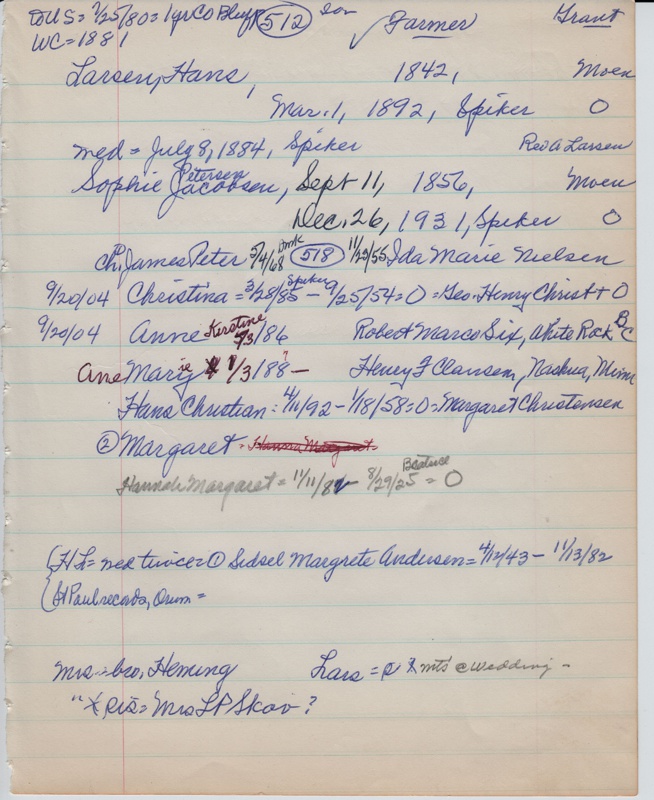 to US = 7/25/80 = 1 yr Co Bluffs (512) son ✓ Farmer Grant
WC = 1881
Larsen, Hans, 1842, Moen
Mar. 1, 1892, Spiker O
med = July 8, 1884, Spiker Rev A Larsen
Petersen
Sophie Jacobsen, Sept 11, 1856, Moen
Dec. 26, 1931, Spiker O
ch. James Peter 5/4/68 (518) 11/29/55 Ida Marie Nielsen
9/20/04 Christina = 3/28/85 Spiker - 9/25/54 = O = Geo. Henry Christ + O
9/20/04 Anne Kerstine 5/3/86 Robert Marco Six, White Rock BC
Ane Marie 1/3/88? - Henry F Clausen, Nashua, Minn
Hans Christian = 4/11/92 - 1/18/58 = O = Margaret Christensen
② Margaret = Hanna Margaret
Hannah Margaret = 11/11/82 - 8/29/25 Beatrice = O
(H L = med twice = ① Sidsel Margrete Andersen = 4/12/43 - 11/13/82
(St Paul records, Orum =
Mrs = bro. Heming Lars = mt's @ wedding -
" sis = Mrs L P Skov?